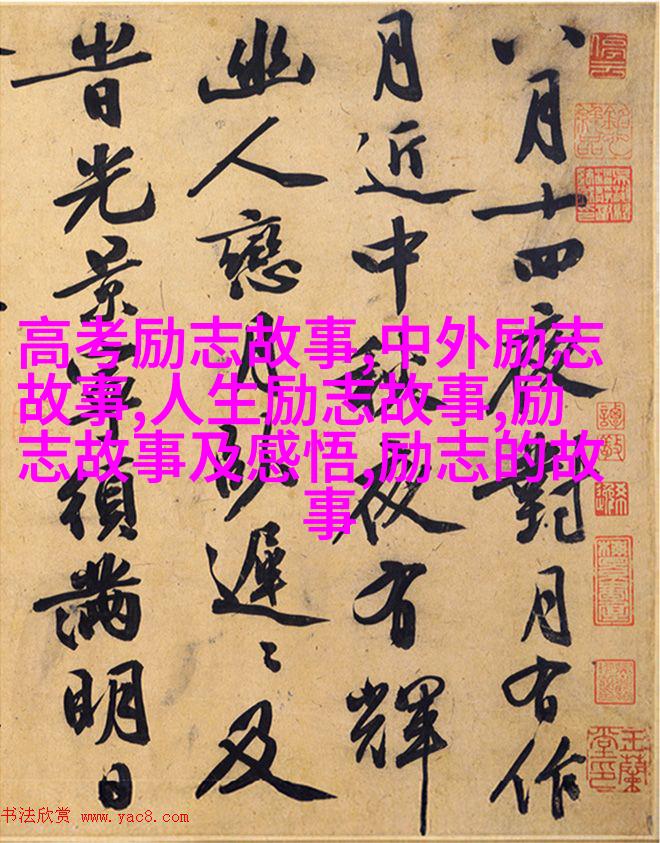 八月十四夜對月有作
月近中秋夜有輝
幽人戀月臥遲〻及
旹光景寧須滿明日
高考励志故事,中外励志
故事,人生励志故事,励
志故事及感悟,励志的故
事
停雲
玉蘭堂印
书法欣赏 www.yac8.com